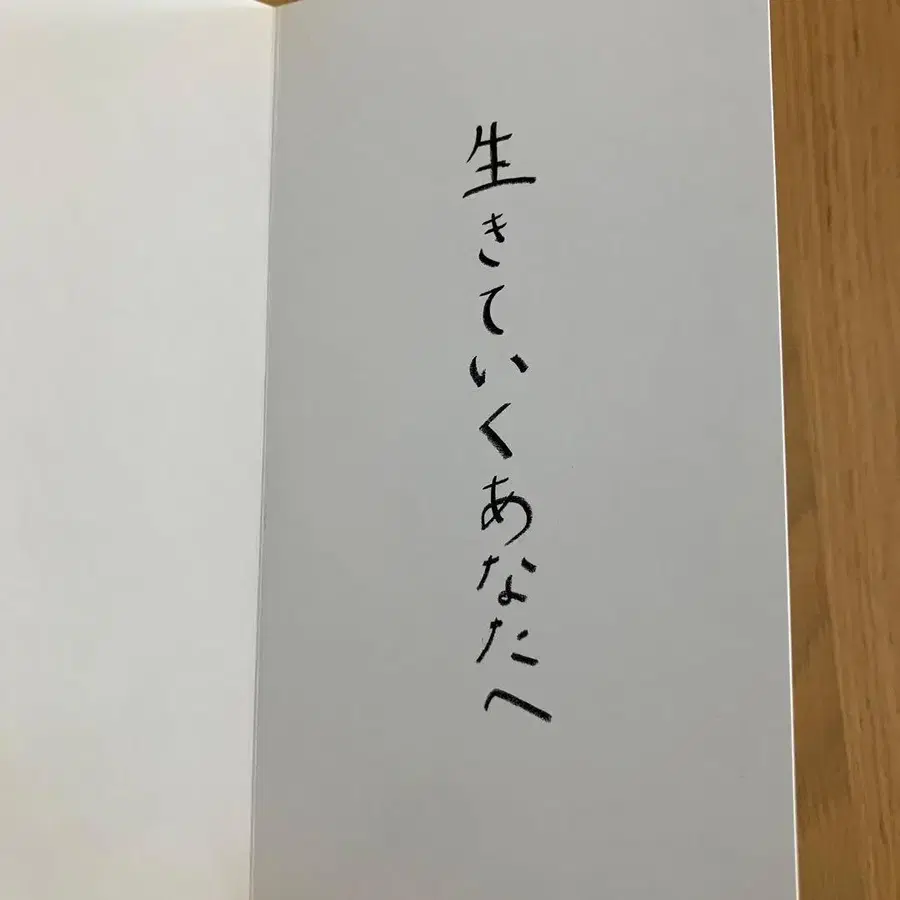 生きていくあなたへ